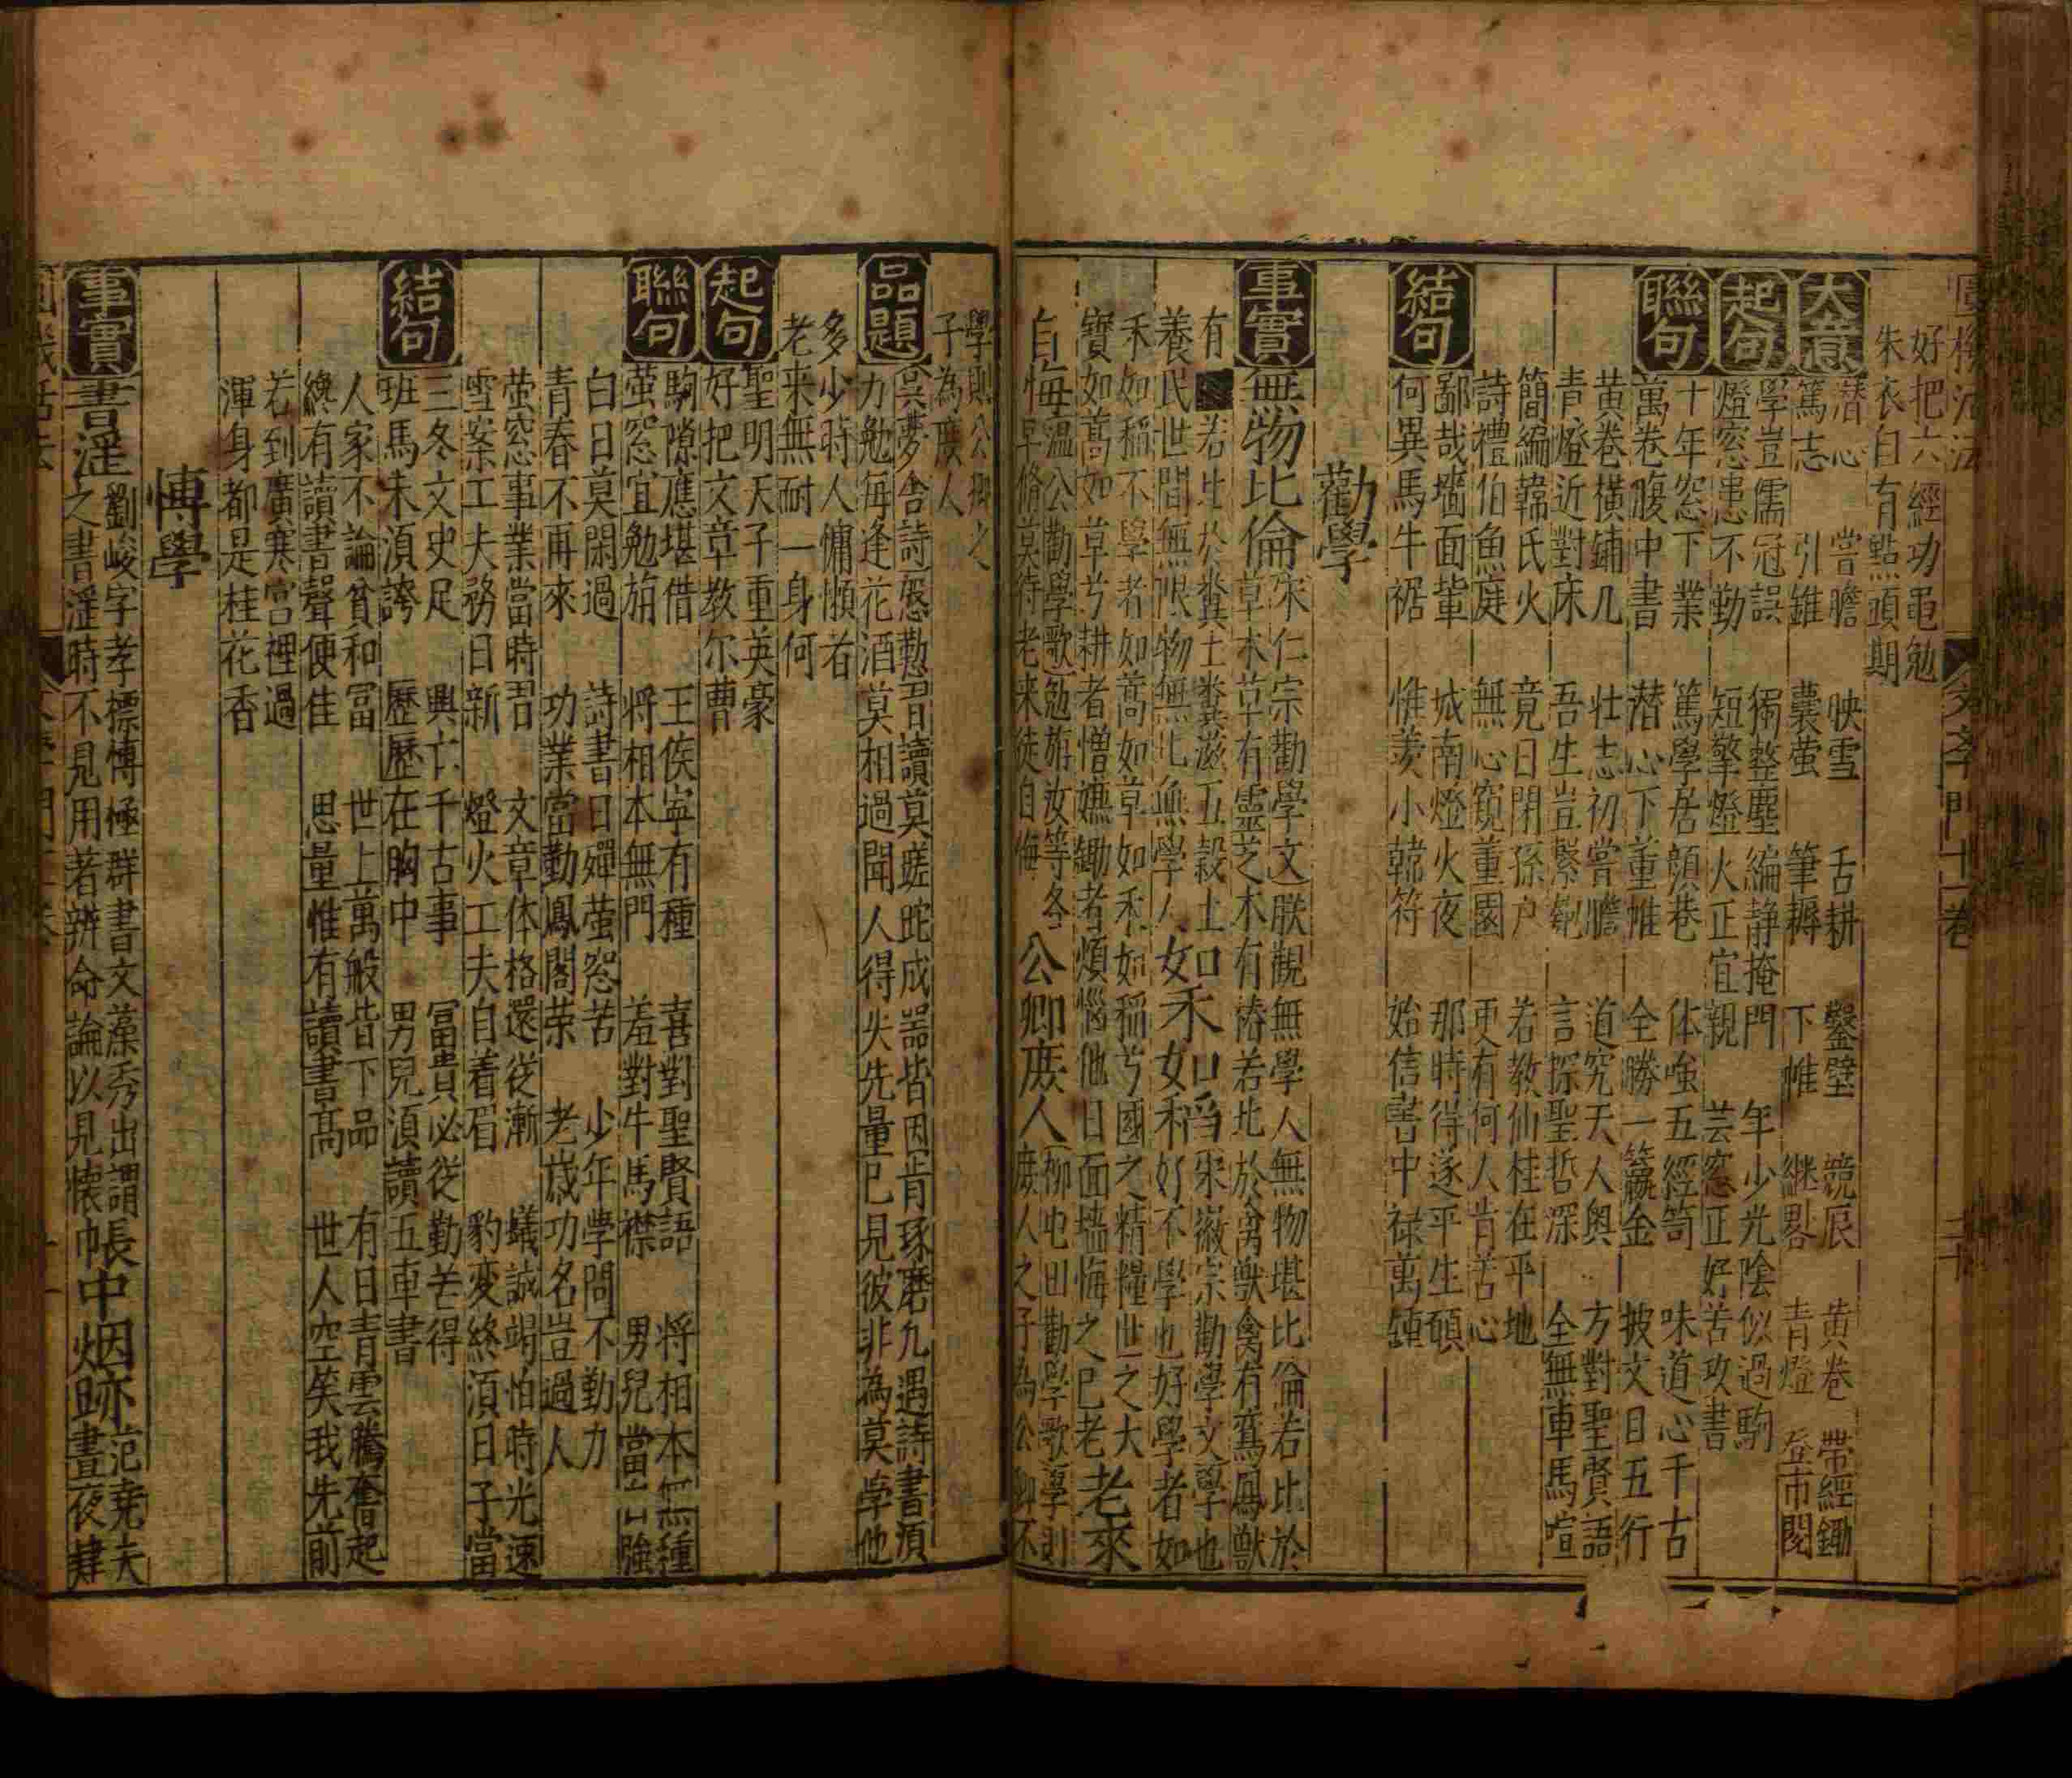 圓機活法
文學門十一卷
好把六經功黽勉
朱衣白有點頭期
大意
潛心 嘗膽 映雪 舌耕 鑿壁 競辰 黄卷 帶經鋤
篤志 引錐 囊萤 筆耨 下帷 継晷 青燈 登市閱
起句
學豈儒冠誤 獨整塵編静掩門 年少光陰似過駒
燈窓患不勤 短擎燈火正宜親 芸窓正好苦攻書
聯句
十年窓下業 篤學居顔巷 体強五經笥 味道心千古
萬卷腹中書 潜心下董帷 全勝一籯金 披文日五行
黄卷橫鋪几 壮志初嘗膽 道究天人奥 方對聖賢語
青燈近對床 吾生豈繫匏 言探聖哲深 全無車馬喧
簡編韓氏火 竟日閉孫户 若教仙桂在平地
詩禮伯魚庭 無心窺董園 更有何人肯苦心
結句
鄙哉墻面輩 城南燈火夜 那時得遂平生碩
何異馬牛裾 惟羡小韓符 始信書中禄萬鍾
勸學
事實
無物比倫
宋仁宗勸學文朕觀無學人無物堪比倫若比於
草木草有靈芝木有椿若比於禽獸禽有鸞鳳獸
有 若比於糞土糞滋五穀土
養民世間無限物無比無學人
如禾如稻
宋徽宗勸學文學也
好不學也好學者如
禾如稻不學者如蒿如草如禾如稻兮國之精糧世之大
寶如蒿如草兮耕者憎嫌鋤者煩惱他日面墙悔之已老
老來
自悔
温公勸學歌勉旃汝等各
早脩莫待老来徒自悔
公卿庻人
柳屯田勸學歌學則
庻人之子為公卿不
學則公卿之
子為庻人
品題
吳夢舎詩慇懃君讀莫蹉跎成噐皆因肯琢磨九遇詩書湏
力勉每逢花酒莫相過聞人得失先量已見彼非為莫學他
多少時人慵懶者
老来無耐一身何
起句
聖明天子重英豪
好把文章教尔曹
聯句
駒隙應堪借 王侯寧有種 喜對聖賢語 将相本無種
萤窓宜勉旃 将相本無門 羞對牛馬襟 男兒當自強
白日莫閑過 詩書日殫萤窓苦 少年學問不勤力
青春不再來 功業當勤鳳閣荣 老歲功名豈過人
萤窓事業當時習 文章体格還従漸 蟻誠竭怕時光速
雪案工夫務日新 燈火工夫自着眉 豹変終湏日子當
結句
三冬文史足 興亡千古事 冨貴必従勤苦得
班馬未湏誇 歷歷在胸中 男兒湏讀五車書
人家不論貧和冨 世上萬般皆下品 有日青雲騰奮起
緫有讀書聲便佳 思量惟有讀書髙 世人空笑我先前
若到廣寒宫裡過
渾身都是桂花香
博學
事實
書淫
劉峻字孝標博極群書文藻秀出謂
之書淫時不見用著辨命論以見懐
帳中烟跡
范堯夫
晝夜肄